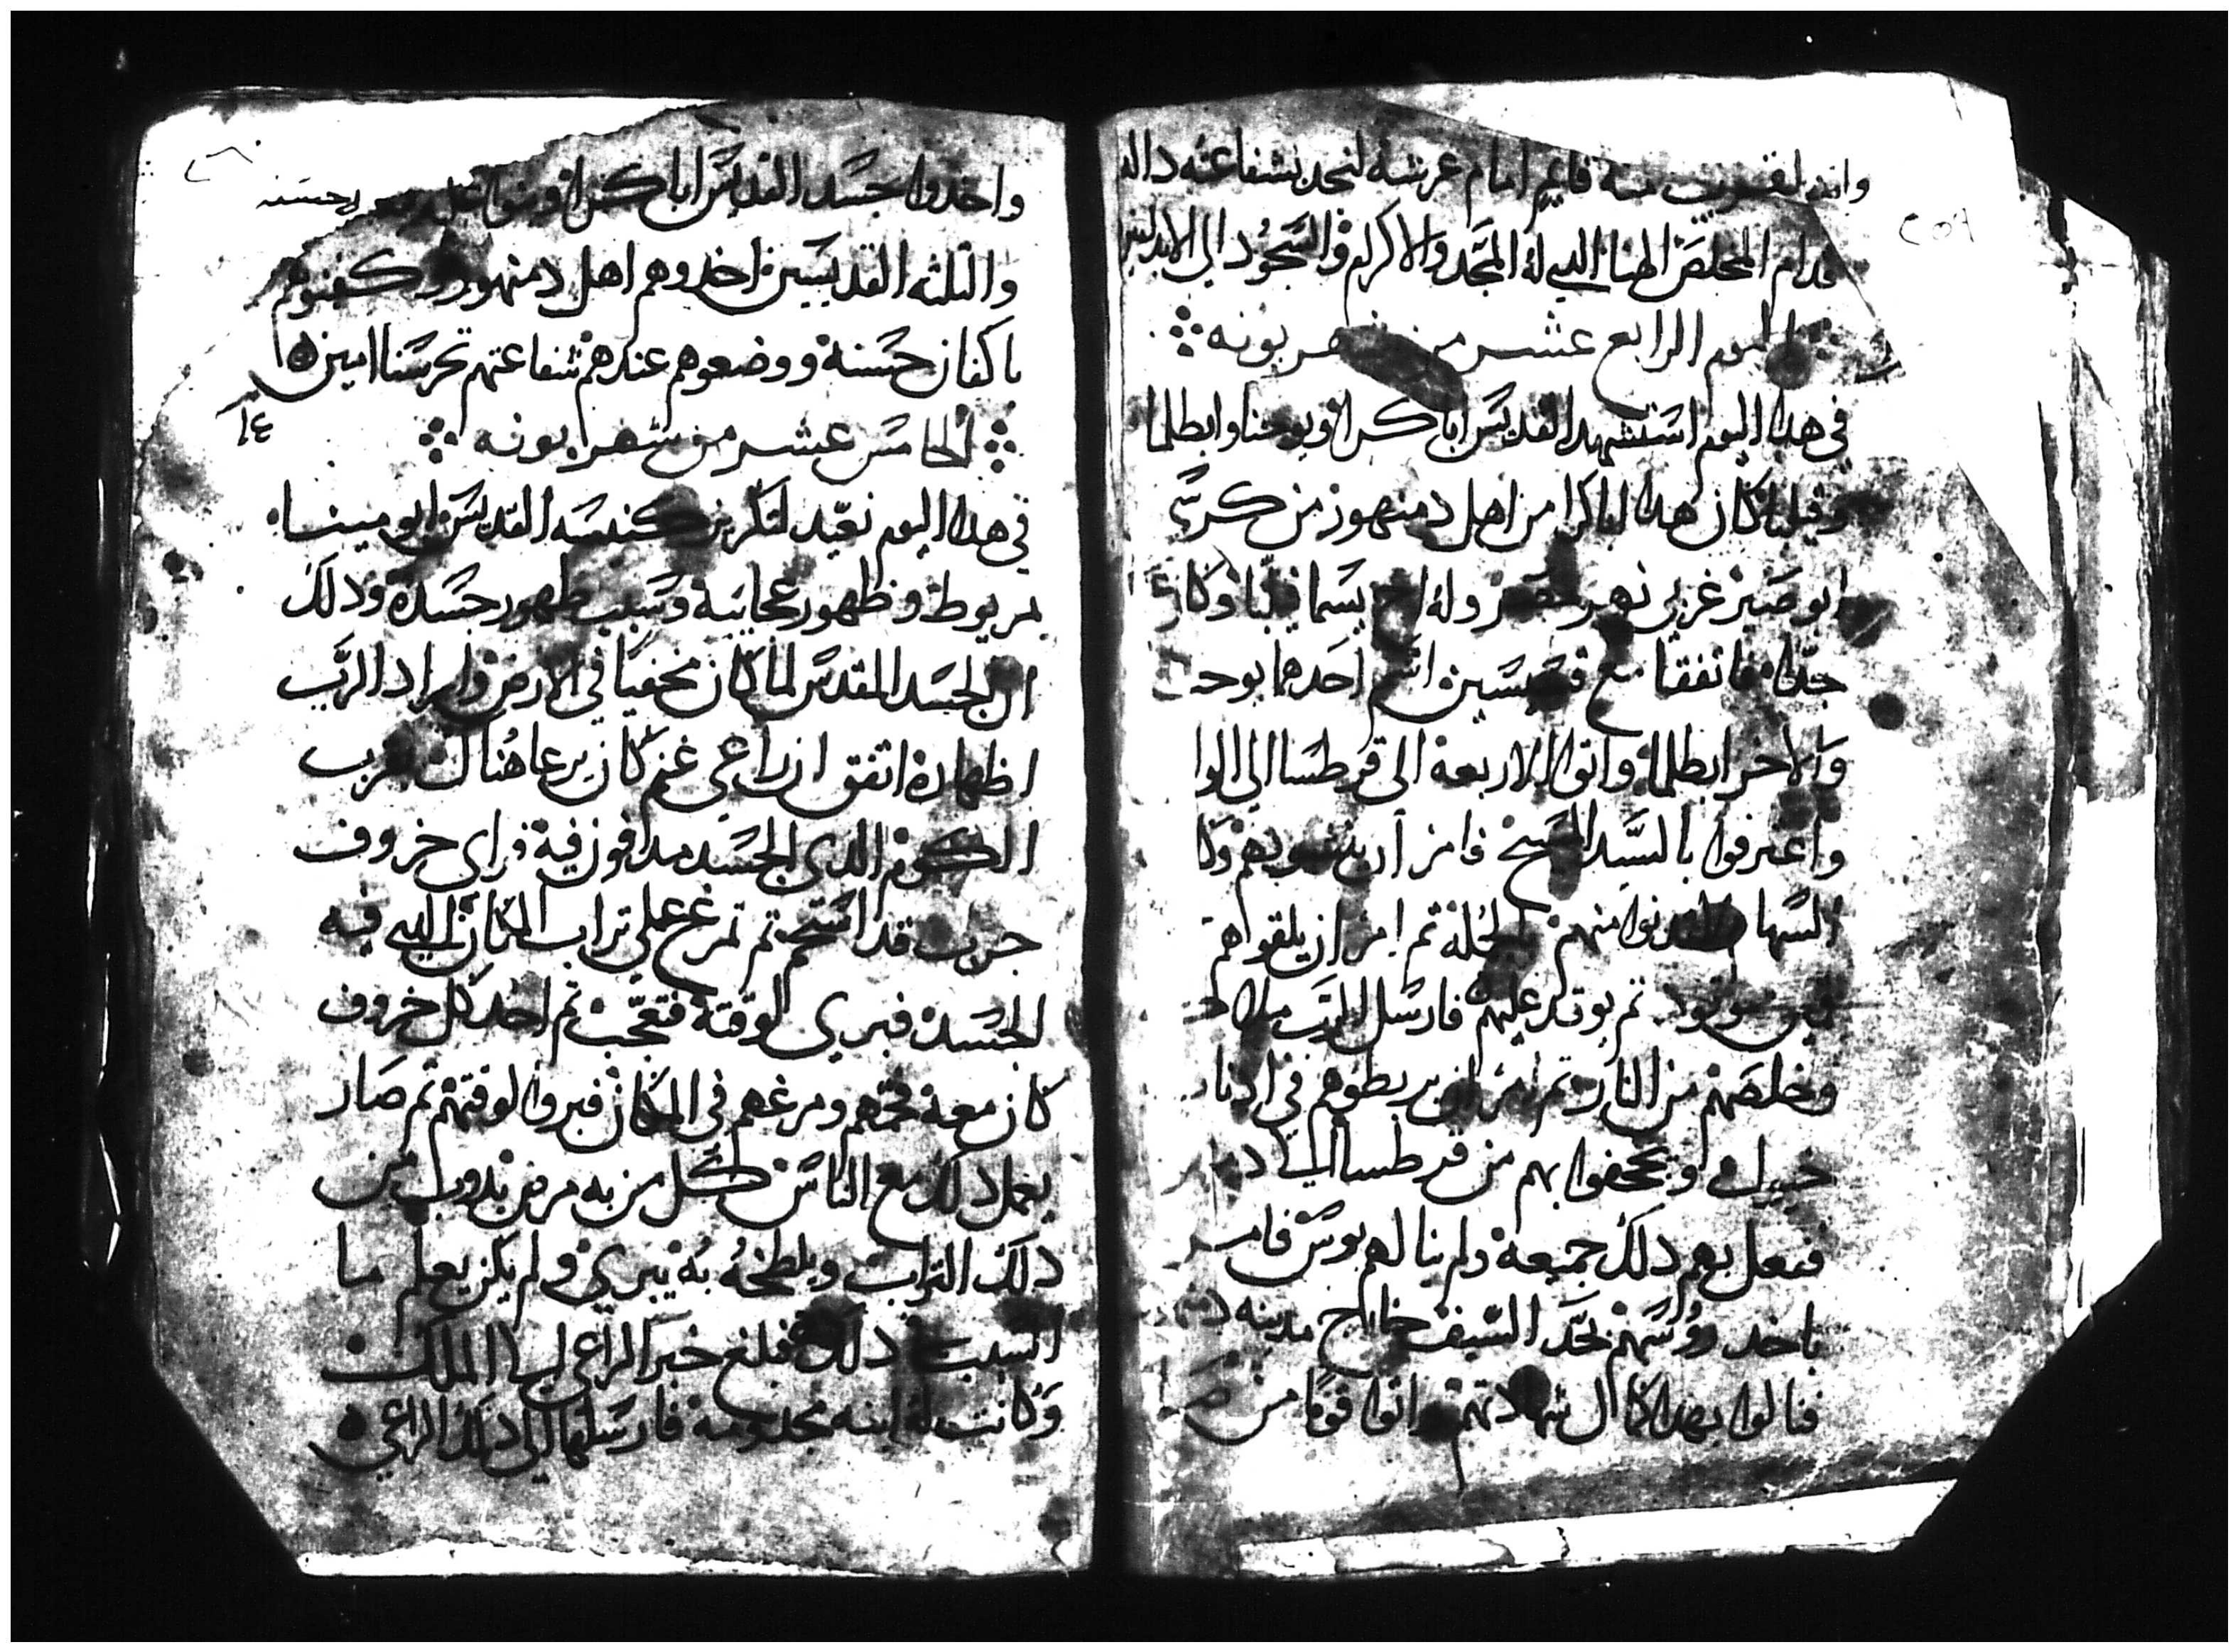 قايم امام عرشه لنجد بشفاعته داله
قدام المخلص الهنا الدي له المجد والاكرام والسجود الي الابد
اليوم الرابع عشر من شهر بونه
في هدا اليوم استشهد القديس اباكراو ويوحنا وابطلما
وفيلبا كان هدا اباكرا من اهل دمنهور من كرسي
ابو صير غربي نهر مصر وله اخ يسما فيلبا وكان
جدا فاتفقا مع قسيسين اسم احدهما يوحنا
والاخر ابطلما واتوا الاربعة الى قرطسا الي الوا
واعترفوا بالسيد المسيح فامر ان ينشبوهم وكا
السهام منهم الجملة تم امر ان يلقوهم
تم يوقد عليهم فارسل الرب ملاك
وخلصهم من النار تم امر ان يربطوهم في ادناب
خيل ويجحفوا بهم من قرطسا الي
ففعل بهم دلك جميعه ولم ينالهم بوس فامر
باخد رووسهم بحد السيف خارج مدينه
فنالوا بهدا كمال شهادتهم واتوا قوما من
واخدوا جسد القديس اباكراو وبنوا عليه
والتلته القديسين اخدوهم اهل دمنهور وكفنوهم
باكفان حسنة ووضعوهم عندهم شفاعتهم تحرسنا امين
الخامس عشر من شهر بونه
في هدا اليوم نعيد لتكريز كنيسه القديس ابو مينا
بمريوط وظهور عجايبه وسبب ظهور جسده ودلك
ان الجسد المقدس لما كان مخفيا في الارض واراد الرب
اظهاره اتفق ان راعي غنم كان يرعا هناك قرب
الكوم الدي الجسد مدافون فيه فراى خروف
جرب قد استحم تم تمرغ على تراب المكان الدي فيه
الجسد فبري لوقته فتعجب تم اخد كل خروف
كان معه فحمهم ومرغهم في المكان فبروا لوقتهم تم صار
يعمل دلك مع الناس كل من به مرض يدوب من
دلك التراب ويلطخه به يبري ولم يكن يعلم ما
السبب دلك فبلغ خبر الراعي الي الملك
وكانت له ابنه مجدومة فارسلها الي دلك الراعي